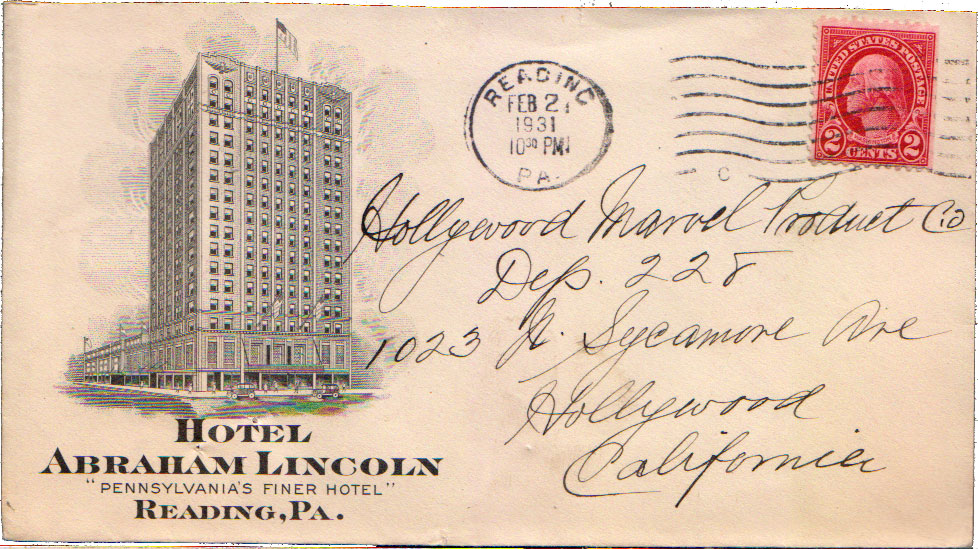 READING
FEB 21
1931
10 30 PM
PA.
C
UNITED STATES POSTAGE
2 CENTS 2
Hollywood Marvel Product Co
Dep. 228
1023 N. Sycamore Ave
Hollywood
California
HOTEL
ABRAHAM LINCOLN
"PENNSYLVANIA'S FINER HOTEL"
READING, PA.